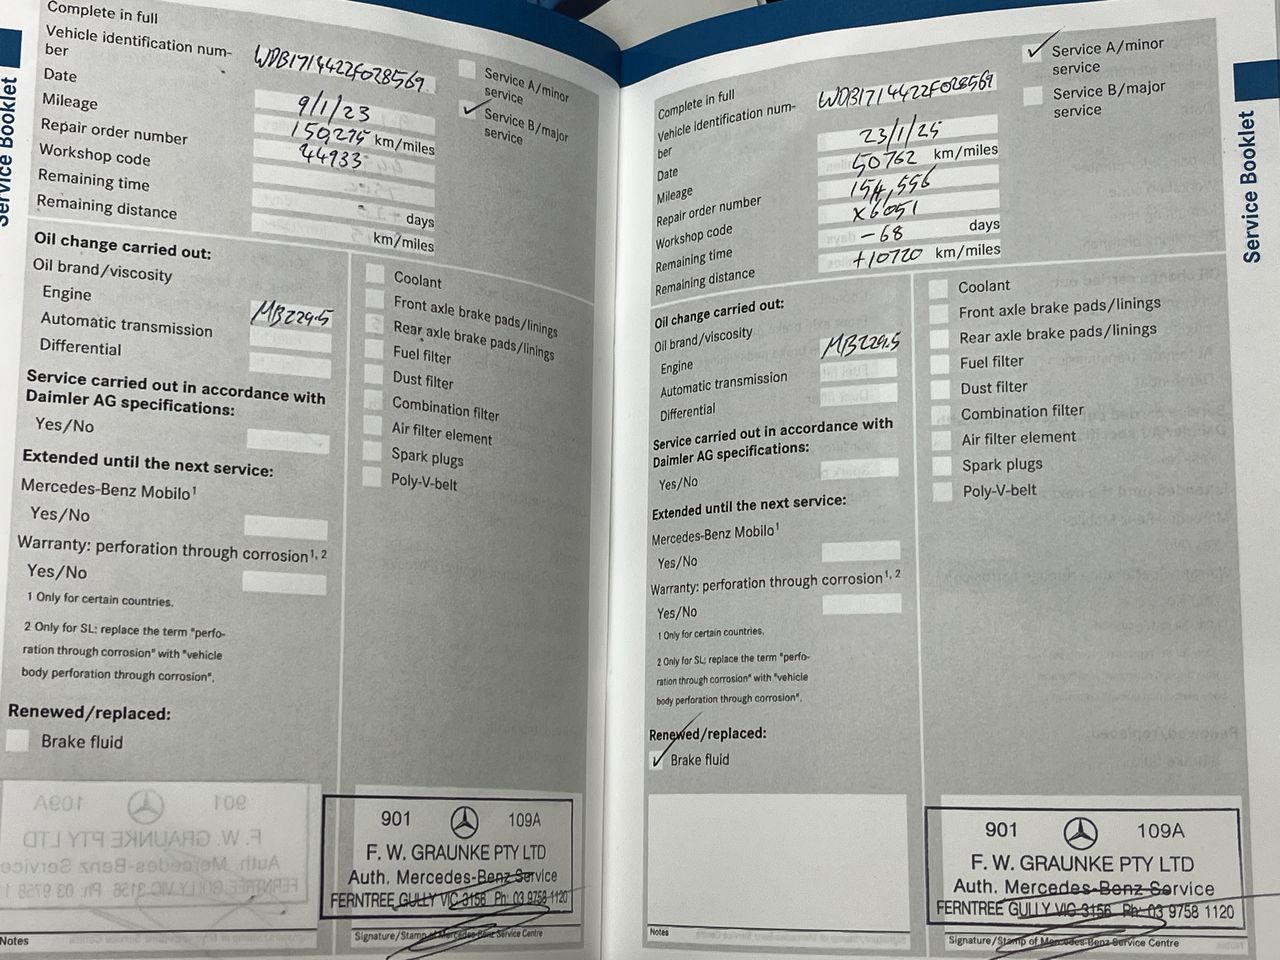 Service Booklet
Complete in full
Vehicle identification num-
ber
WDB1714422F028569
Date
9/1/23
Mileage
150,275 km/miles
Repair order number
44933
Workshop code
Remaining time
- days
Remaining distance
km/miles
Service A/minor
service
✓ Service B/major
service
Oil change carried out:
Oil brand/viscosity
Engine
MB229.5
Automatic transmission
Differential
Service carried out in accordance with
Daimler AG specifications:
Yes/No
Extended until the next service:
Mercedes-Benz Mobilo1
Yes/No
Warranty: perforation through corrosion1, 2
Yes/No
1 Only for certain countries.
2 Only for SL: replace the term "perfo-
ration through corrosion" with "vehicle
body perforation through corrosion".
Renewed/replaced:
Brake fluid
Coolant
Front axle brake pads/linings
Rear axle brake pads/linings
Fuel filter
Dust filter
Combination filter
Air filter element
Spark plugs
Poly-V-belt
901 109A
F. W. GRAUNKE PTY LTD
Auth. Mercedes-Benz Service
FERNTREE GULLY VIC 3156 Ph: 03 9758 1120
Notes
Signature/Stamp of Mercedes-Benz Service Centre
Complete in full
Vehicle identification num-
ber
WDB1714422F028569
Date
23/1/25
Mileage
50762 km/miles
Repair order number
154,556
Workshop code
X6051
Remaining time
-68 days
Remaining distance
+10720 km/miles
✓ Service A/minor
service
Service B/major
service
Service Booklet
Oil change carried out:
Oil brand/viscosity
Engine
MB229.5
Automatic transmission
Differential
Service carried out in accordance with
Daimler AG specifications:
Yes/No
Extended until the next service:
Mercedes-Benz Mobilo1
Yes/No
Warranty: perforation through corrosion1, 2
Yes/No
1 Only for certain countries.
2 Only for SL: replace the term "perfo-
ration through corrosion" with "vehicle
body perforation through corrosion".
Renewed/replaced:
✓ Brake fluid
Coolant
Front axle brake pads/linings
Rear axle brake pads/linings
Fuel filter
Dust filter
Combination filter
Air filter element
Spark plugs
Poly-V-belt
901 109A
F. W. GRAUNKE PTY LTD
Auth. Mercedes-Benz Service
FERNTREE GULLY VIC 3156 Ph: 03 9758 1120
Notes
Signature/Stamp of Mercedes-Benz Service Centre